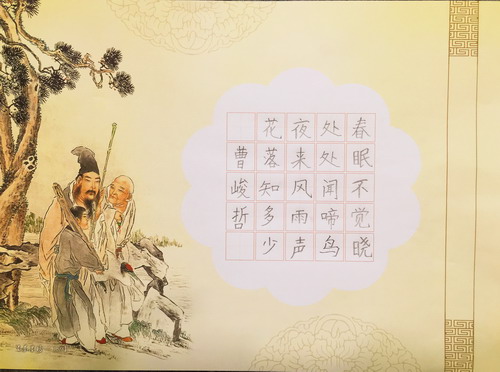 春眠不觉晓
处处闻啼鸟
夜来风雨声
花落知多少
曹峻哲